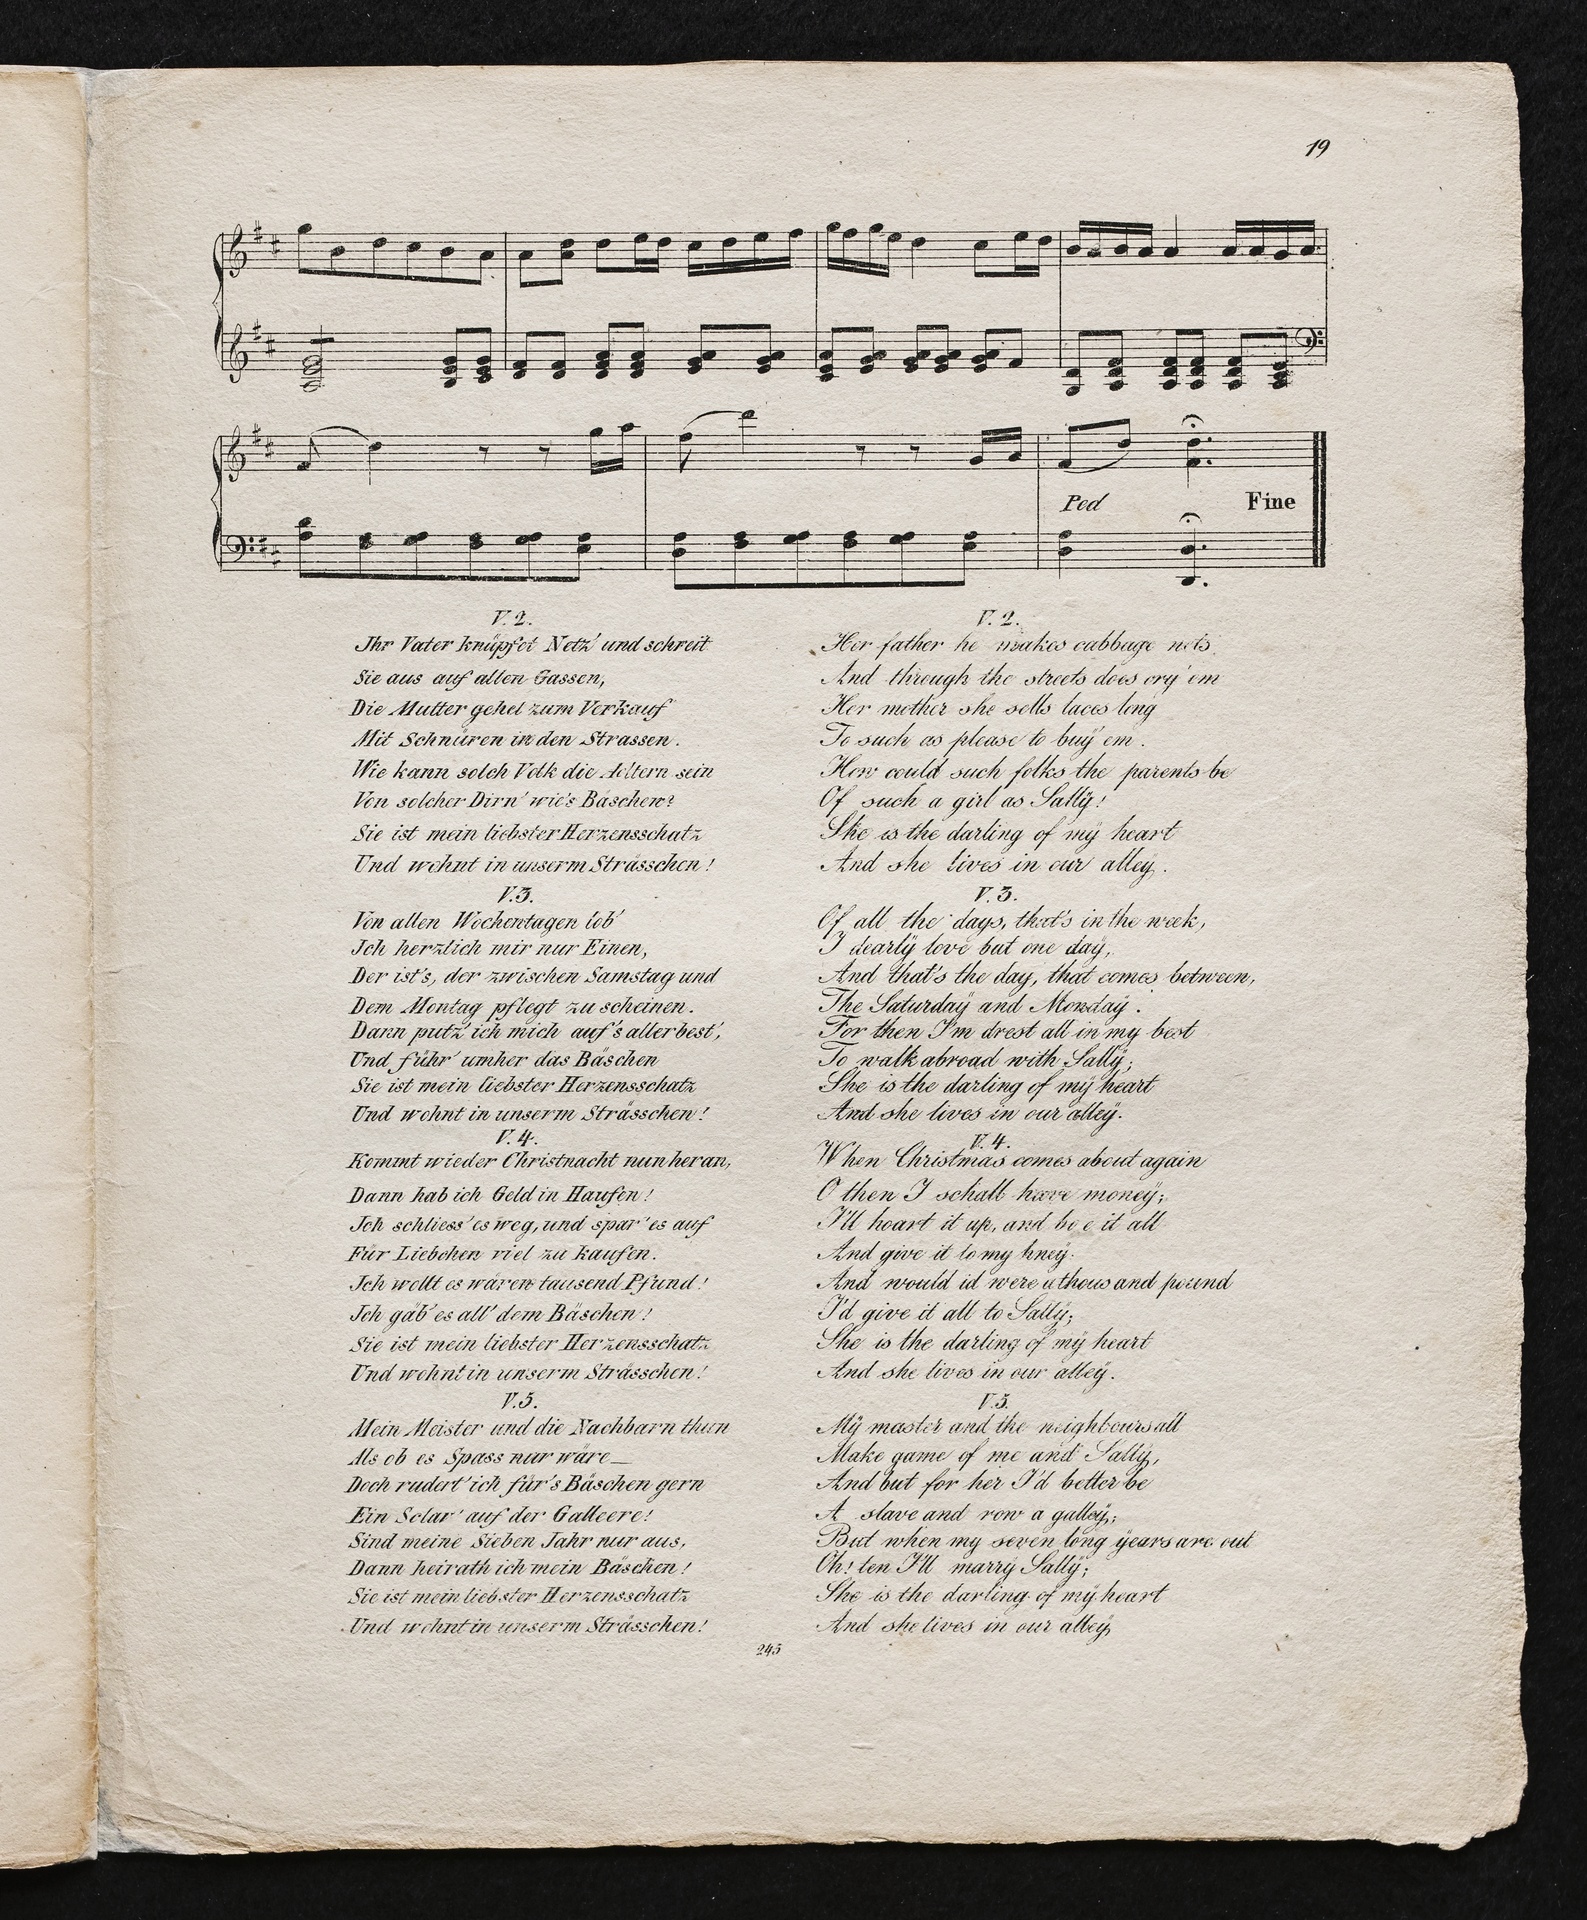 19
Ped
Fine
V. 2.
Ihr Vater knüpfet Netz' und schreit
Sie aus auf allen Gassen,
Die Mutter gehet zum Verkauf
Mit Schnüren in den Strassen.
Wie kann solch Volk die Aeltern sein
Von solcher Dirn' wie's Bäschen?
Sie ist mein liebster Herzensschatz
Und wohnt in unserm Strässchen!
V. 3.
Von allen Wochentagen lob'
Ich herzlich mir nur Einen,
Der ist's, der zwischen Samstag und
Dem Montag pflegt zu scheinen.
Dann putz' ich mich auf's allerbest',
Und führ' umher das Bäschen
Sie ist mein liebster Herzensschatz
Und wohnt in unserm Strässchen!
V. 4.
Kommt wieder Christnacht nun heran,
Dann hab ich Geld in Haufen!
Ich schliess' es weg, und spar' es auf
Für Liebchen viel zu kaufen.
Ich wollt es wären tausend Pfund!
Ich gäb' es all' dem Bäschen!
Sie ist mein liebster Herzensschatz
Und wohnt in unserm Strässchen!
V. 5.
Mein Meister und die Nachbarn thun
Als ob es Spass nur wäre—
Doch rudert' ich für's Bäschen gern
Ein Sclav' auf der Galleere!
Sind meine Sieben Jahr nur aus,
Dann heirath ich mein Bäschen!
Sie ist mein liebster Herzensschatz
Und wohnt in unserm Strässchen!
V. 2.
Her father he makes cabbage nets
And through the streets does cry 'em
Her mother she sells laces long
To such as please to buy 'em.
How could such folks the parents be
Of such a girl as Sally!
She is the darling of my heart
And she lives in our alley.
V. 3.
Of all the days, that's in the week,
I dearly love but one day,
And that's the day, that comes between,
The Saturday and Monday.
For then I'm drest all in my best
To walk abroad with Sally;
She is the darling of my heart
And she lives in our alley.
V. 4.
When Christmas comes about again
O then I schall have money;
I'll hoart it up, and it all
And give it to my hney.
And would id were a thousand pound
I'd give it all to Sally;
She is the darling of my heart
And she lives in our alley.
V. 5.
My master and the neighbours all
Make game of me and Sally,
And but for her I'd better be
A slave and row a galley;
But when my seven long years are out
Oh! ten I'll marry Sally;
She is the darling of my heart
And she lives in our alley,
245